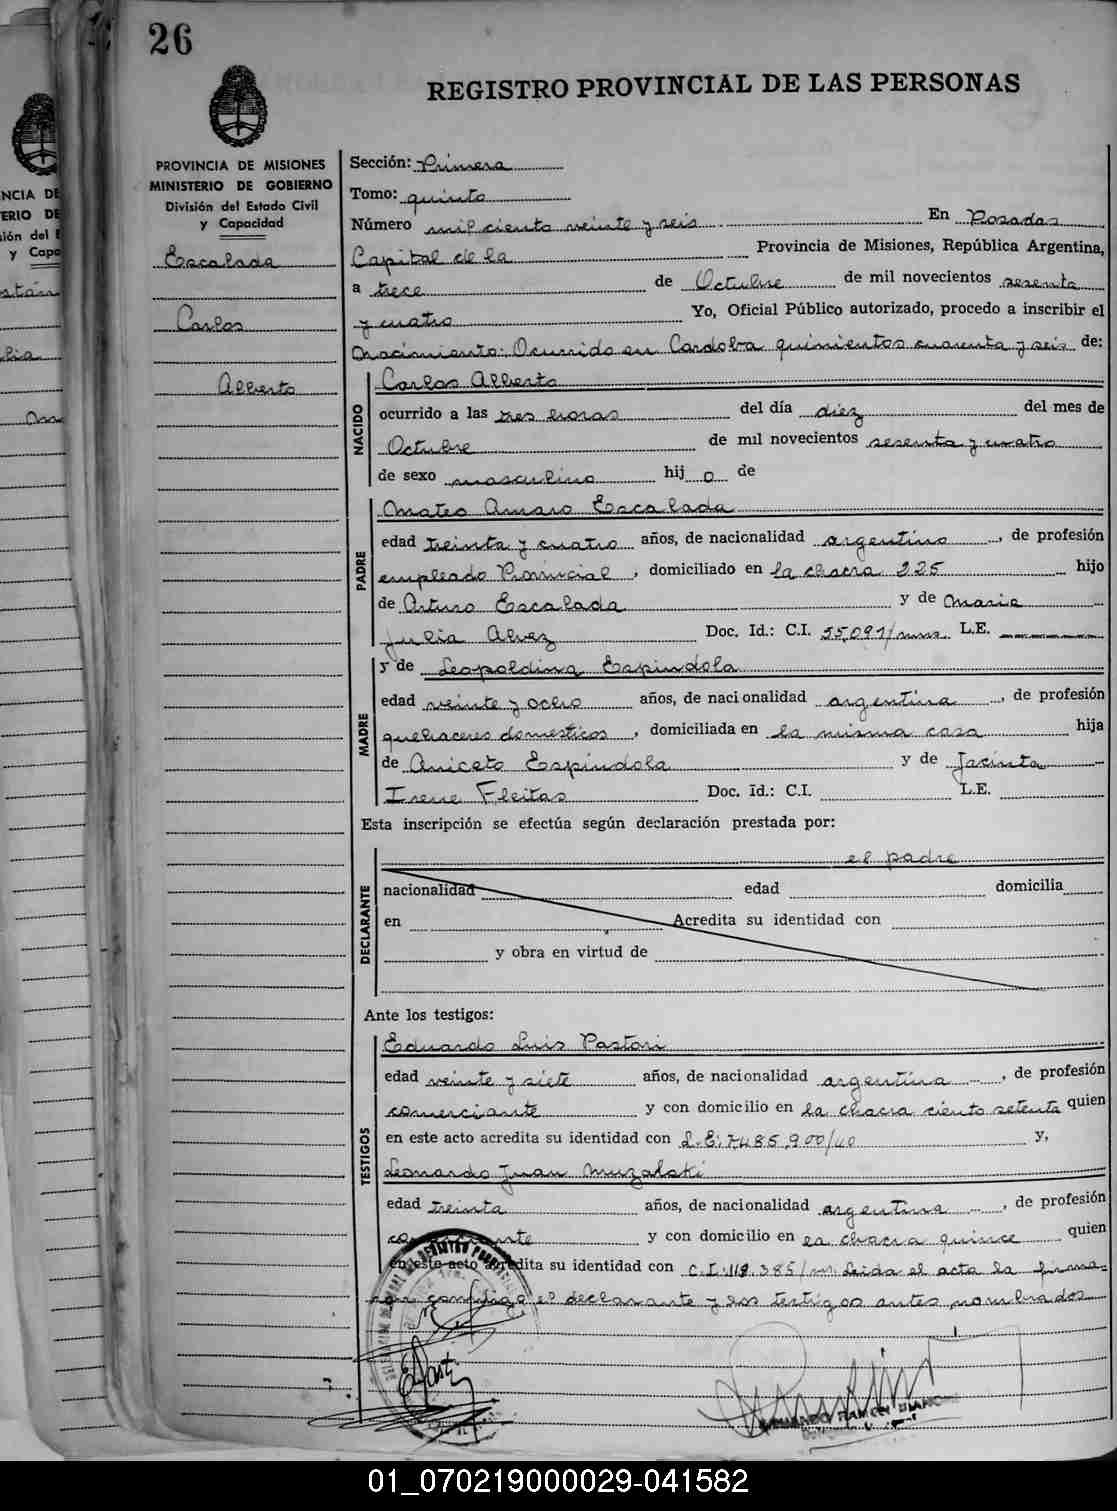 26
REGISTRO PROVINCIAL DE LAS PERSONAS
PROVINCIA DE MISIONES
MINISTERIO DE GOBIERNO
División del Estado Civil
y Capacidad
Escalada
Carlos
Alberto
Sección: Primera
Tomo: quinto
Número mil ciento veinte y seis En Posadas
Capital de la Provincia de Misiones, República Argentina,
a trece de Octubre de mil novecientos sesenta
y cuatro Yo, Oficial Público autorizado, procedo a inscribir el
Nacimiento: Ocurrido en Cardoba quinientos cuarenta y seis de:
NACIDO
Carlos Alberto
ocurrido a las tres horas del día diez del mes de
Octubre de mil novecientos sesenta y cuatro
de sexo masculino hij o de
PADRE
Mateo Amaro Escalada
edad treinta y cuatro años, de nacionalidad argentino, de profesión
empleado Provincial, domiciliado en la chacra 225 hijo
de Arturo Escalada y de Maria
Julia Alvez Doc. Id.: C.I. 55.091/mns. L.E.
MADRE
y de Leopoldina Espindola
edad veinte y ocho años, de nacionalidad argentina, de profesión
quehaceres domesticos, domiciliada en la misma casa hija
de Aniceto Espindola y de Jacinta
Irene Fleitas Doc. Id.: C.I. L.E.
Esta inscripción se efectúa según declaración prestada por:
DECLARANTE
el padre
nacionalidad edad domicilia
en Acredita su identidad con
y obra en virtud de
Ante los testigos:
TESTIGOS
Eduardo Luis Pastori
edad veinte y siete años, de nacionalidad argentina, de profesión
comerciante y con domicilio en la chacra ciento setenta quien
en este acto acredita su identidad con L.E: 7.485.900/40 y,
Leonardo Juan Muzalski
edad treinta años, de nacionalidad argentina, de profesión
comerciante y con domicilio en la chacra quince quien
en este acto acredita su identidad con C.I: 119.385/mns. Leida el acta la firma
con conmigo el declarante y los testigos antes nombrados
01_070219000029-041582